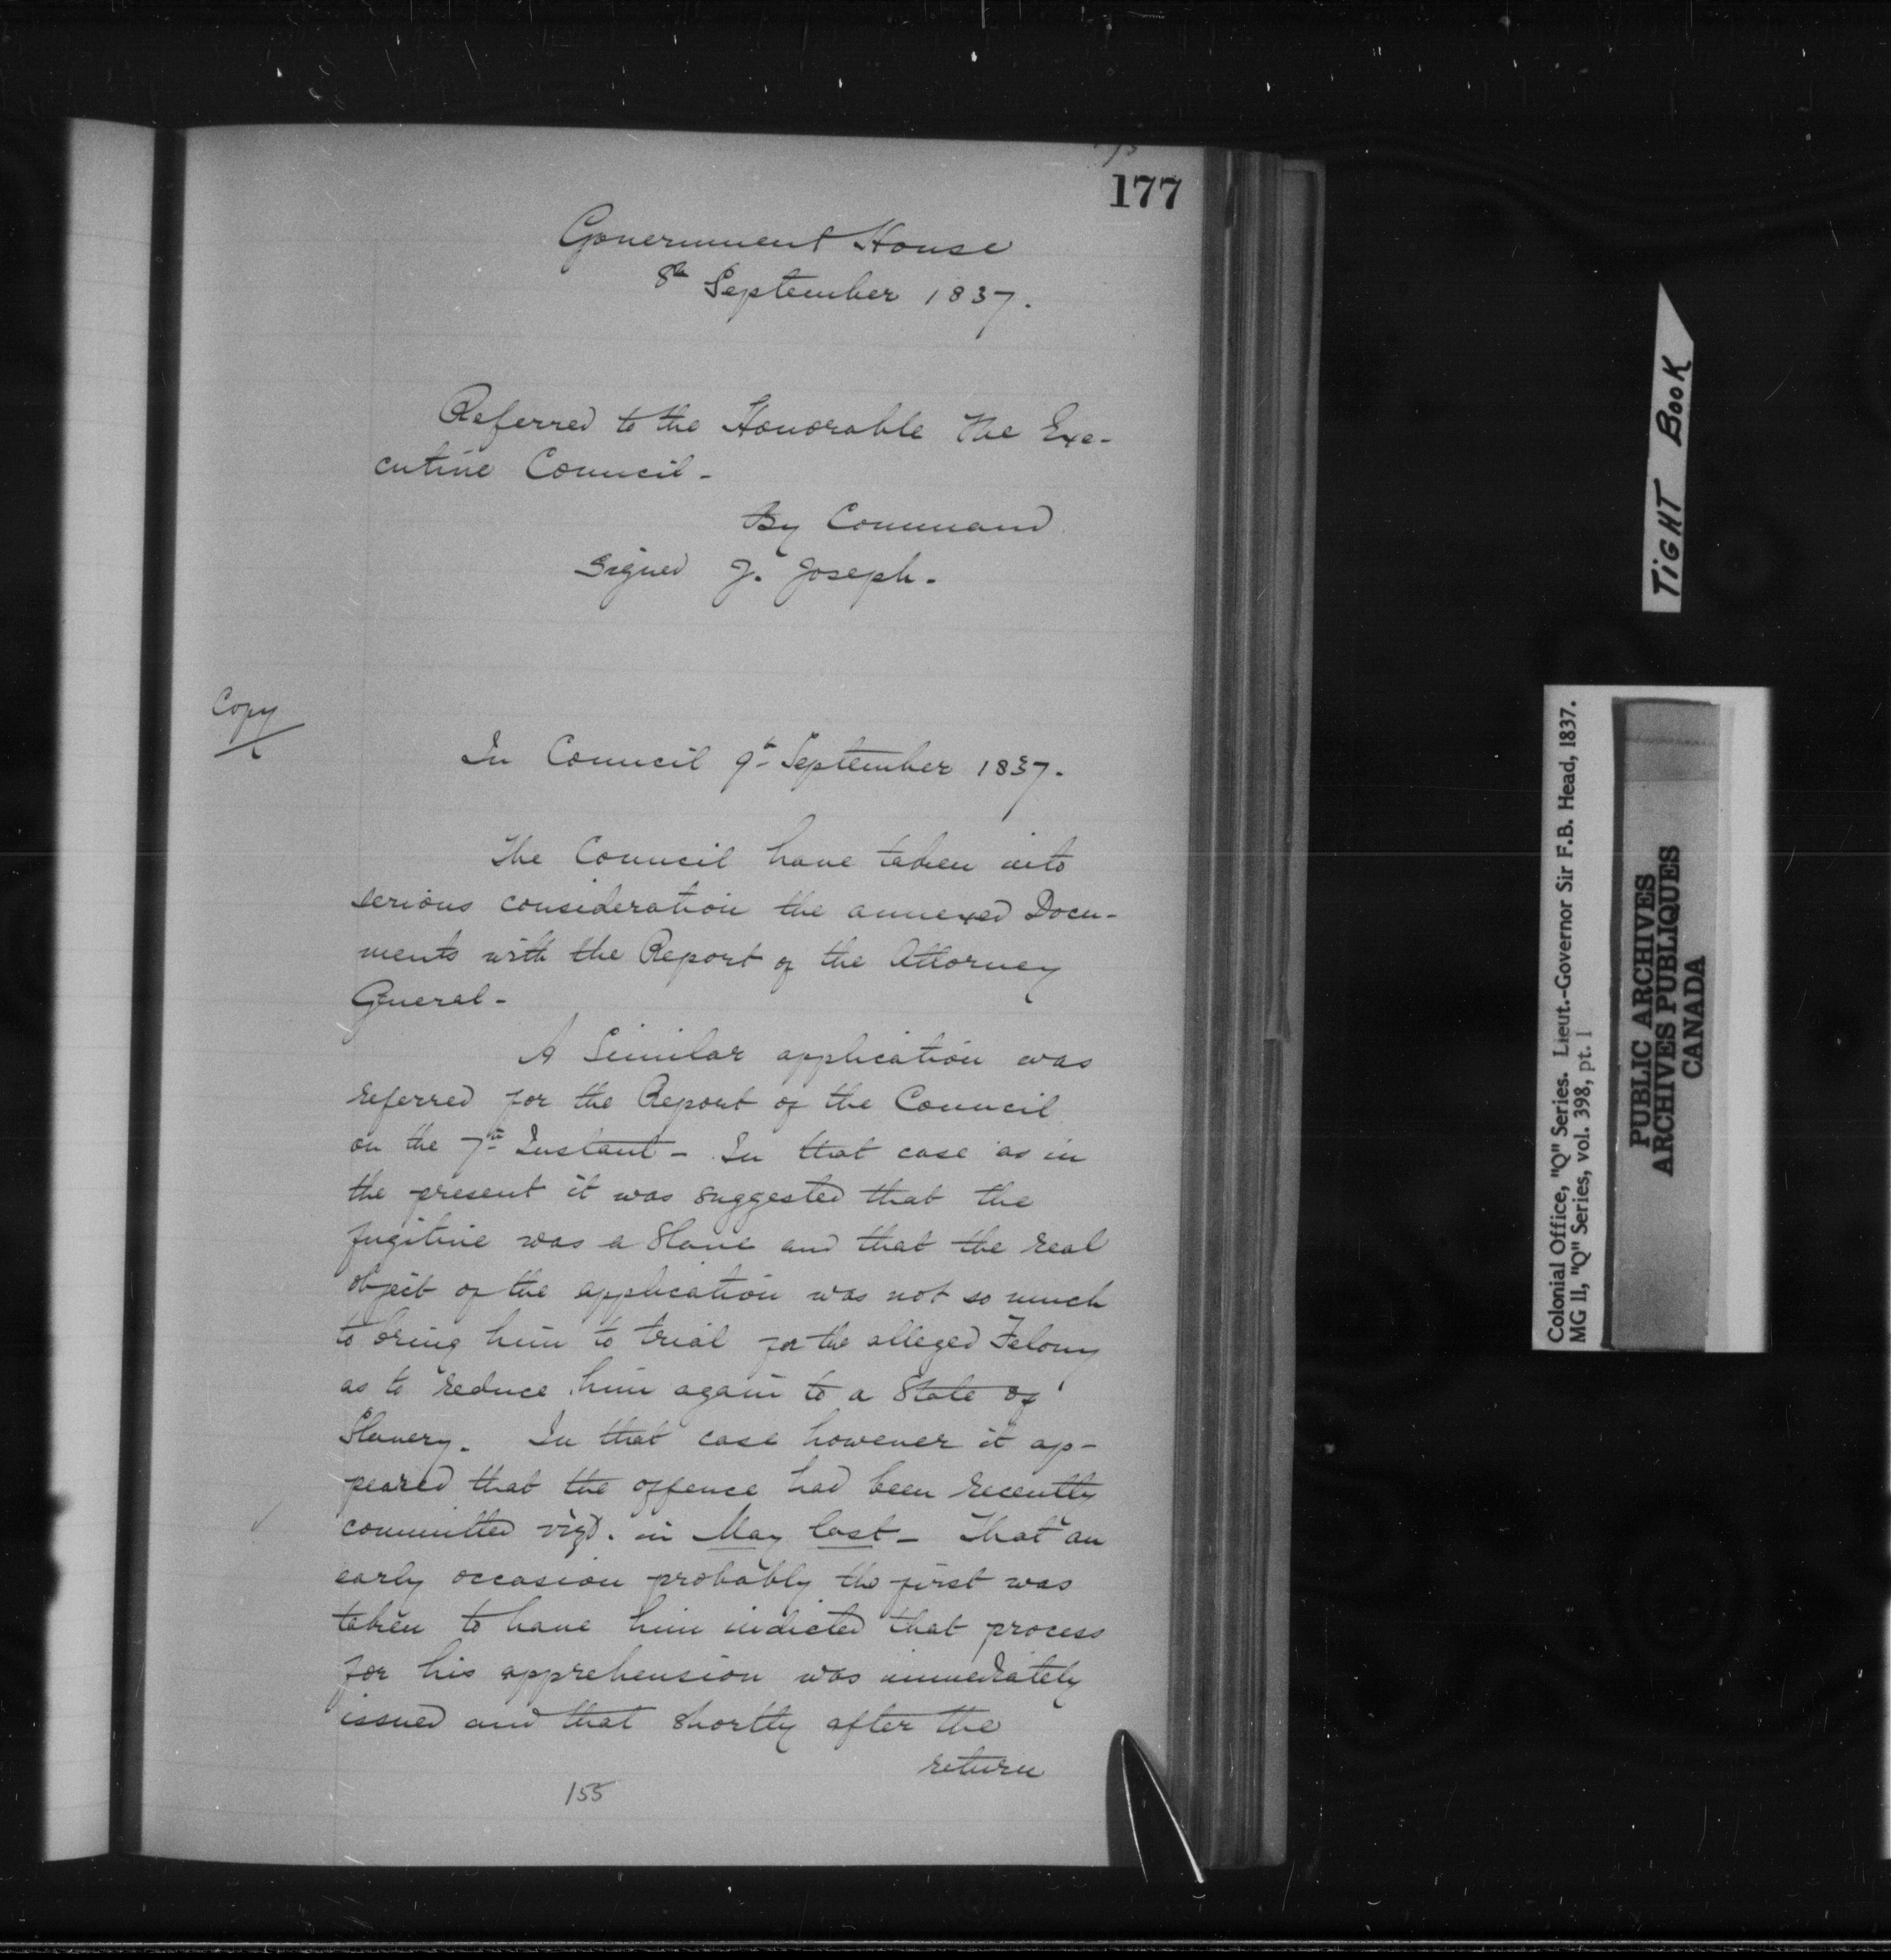 177
Government House
8th September 1837.
Referred to the Honorable the Exe-
cutive Council -
By Command
Signed J. Joseph.
Copy
In Council 9th September 1837.
The Council have taken into
serious consideration the annexed Docu-
ments with the Report of the Attorney
General -
A Similar application was
referred for the Report of the Council
on the 7th Instant - In that case as in
the present it was suggested that the
fugitive was a Slave and that the real
object of the application was not so much
to bring him to trial for the alleged Felony
as to reduce him again to a State of
Slavery. In that case however it ap-
peared that the offence had been recently
committed vizt. in May last - That an
early occasion probably the first was
taken to have him indicted that process
for his apprehension was immediately
issued and that shortly after the
return
155
TIGHT BOOK
Colonial Office, "Q" Series. Lieut.-Governor Sir F.B. Head, 1837.
MG 11, "Q" Series, vol. 398, pt. 1
PUBLIC ARCHIVES
ARCHIVES PUBLIQUES
CANADA